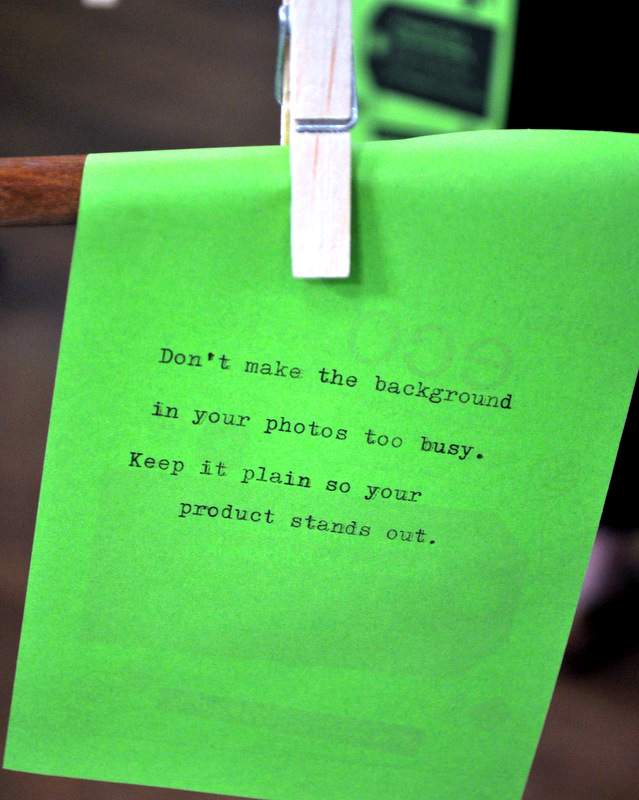 Don't make the background
in your photos too busy.
Keep it plain so your
product stands out.